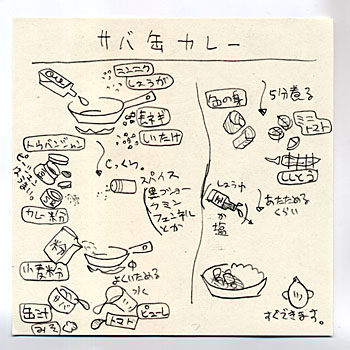 サバ缶カレー
ニンニク
しょうが
長ネギ
しいたけ
トウバンジャン
カレー粉
じっくり。
スパイス
黒コショー
クミン
フェンネル
とか
粉
小麦粉
よくいためる
缶汁
サバ
みそ
トマト
ピューレ
缶の身
5分煮る
ミニ
トマト
ししとう
しょうゆ
か
塩
あたためる
くらい
すぐできます。